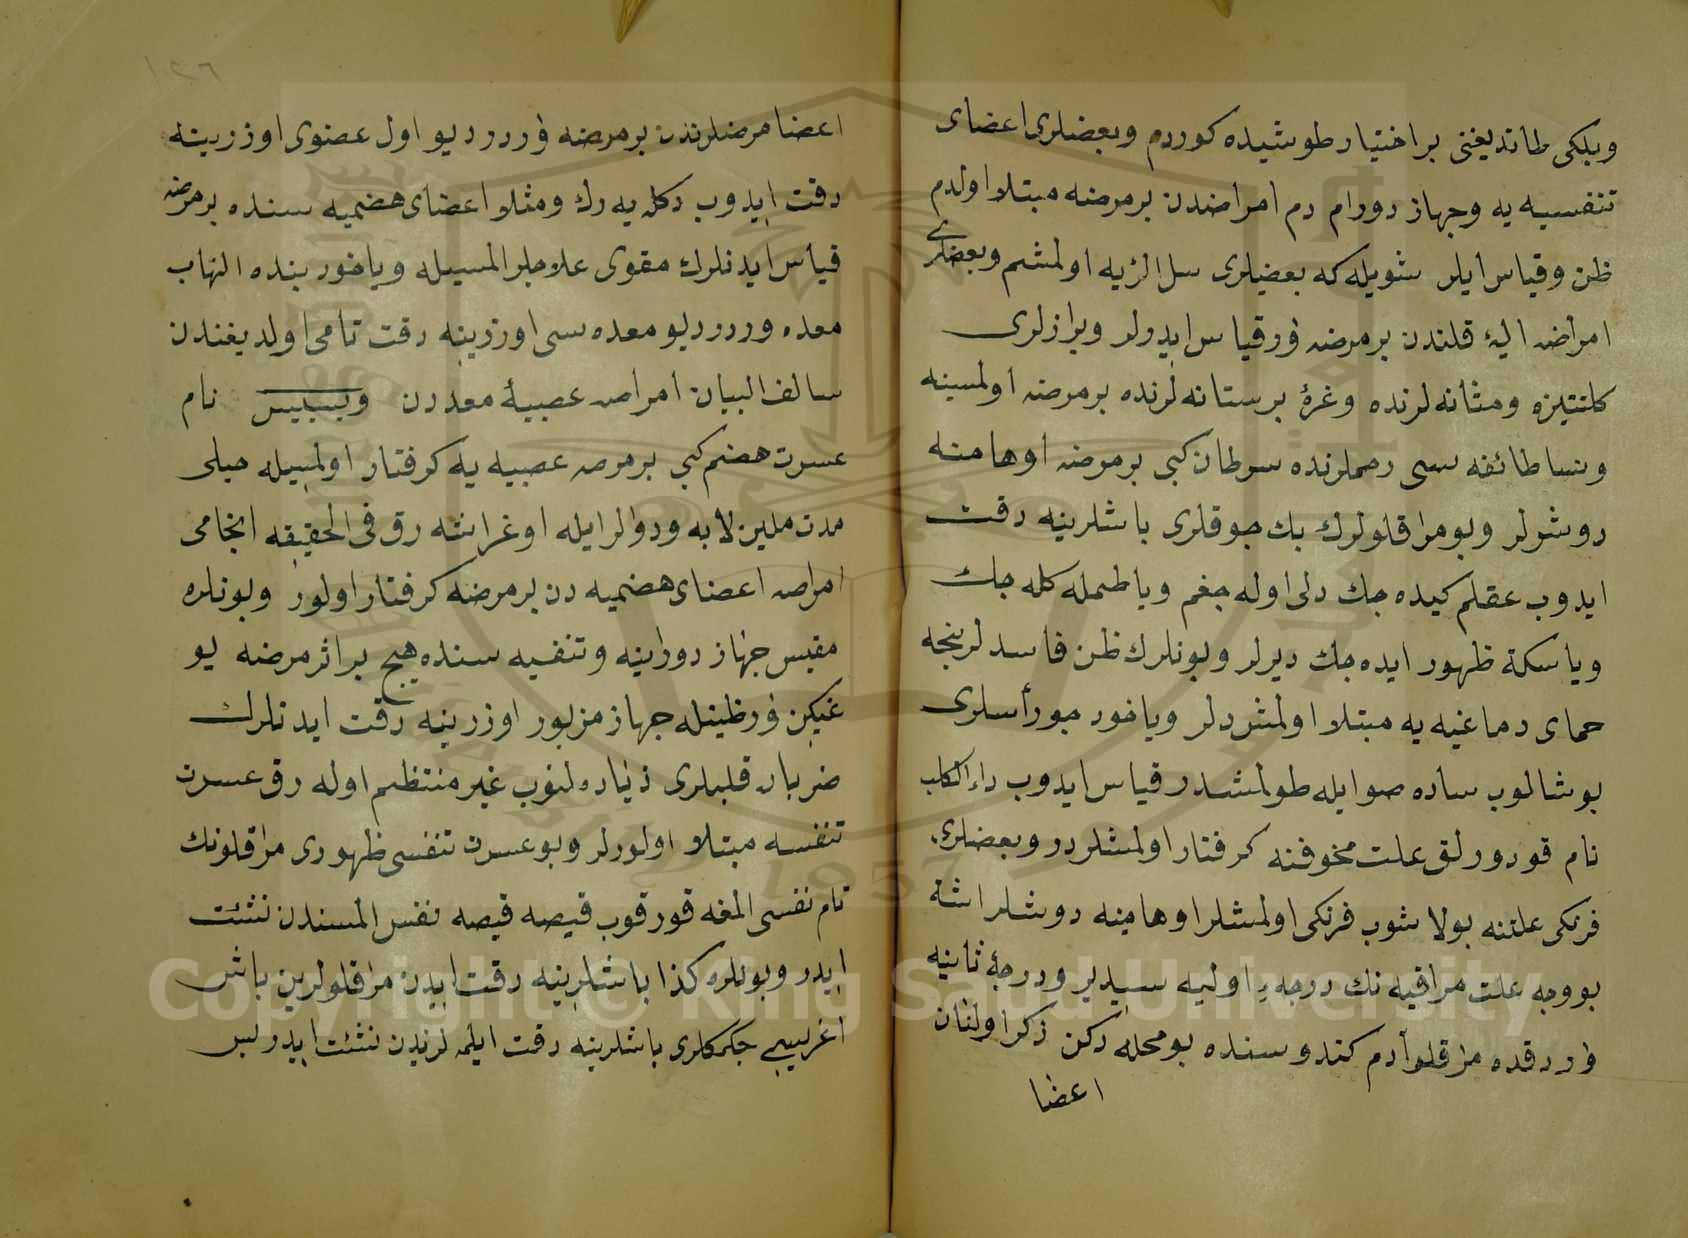 وبلكى طانديغنى بر اختيار طوشيده كوردم وبعضلرى اعضاى
تنفسيه يه وجهاز دورام دم امراضدن بر مرضه مبتلا اولدم
ظن وقياس ايلر شويله كه بعضيلرى سل الرئيه اولمشم وبعضلرى
امراض اليۀ قلندن بر مرض وار قياس ايدرلر وبرازلرى
كلنتيزه ومثانه لرنده وغرۀ برستانه لرنده بر مرض اولمسينه
ونسا طائفه سى رحملرنده سرطان كبى بر مرض اوهامنه
دوشرلر وبو مراقلولرك بك جوقلرى باشلرينه دقت
ايدوب عقلم كيده جك دلى اوله جغم وياطمله كله جك
ويا سكتة ظهور ايده جك ديرلر وبونلرك ظن فاسدلرنجه
حماى دماغيه يه مبتلا اولمشردلر وياخود مورأسلرى
بوشالوب ساده صوايله طولمشدر قياس ايدوب داء الكلب
نام قودورلق علت مخوفنه كرفتار اولمشلردر وبعضلرى
فرنكى علتنه بولاشوب فرنكى اولمشلر اوهامينه دوشلر اشة
بووجه علت مراقيه نك درجه ء اوليه سيدير ودرجۀ ثانيه
واردقده مراقلو آدم كندوسنده بومحله دكن ذكر اولنان
اعضا
١٢٦
اعضا مرضلرندن بر مرضه واردر ديو اول عضوى اوزرينه
دقت ايدوب دكله يه رك ومثلا اعضاى هضميه سنده بر مرض
قياس ايدنلرك مقوى علاجلر المسيله وياخود بنده التهاب
معده واردر ديو معده سى اوزرينه دقت تامى اولديغندن
سالف البيان امراض عصبيۀ معده دن وبسبيس نام
عسرت هضم كبى بر مرض عصبيه يه كرفتار اولمسيله حيلى
مدت ملين لابه ودوالر ايله اوغراشه رق فى الحقيقه انجامى
امراض اعضاى هضميه دن بر مرضه كرفتار اولور وبونلره
مقيس جهاز دورانيه وتنفسيه سنده هيچ بر اثر مرضه يو
غيكن وار ظنيله جهاز مزبور اوزرينه دقت ايدنلرك
ضربات قلبلرى زياده لنوب غير منتظم اوله رق عسرت
تنفسه مبتلا اولورلر وبوعسرت تنفسى ظهورى مراقلونك
تام نفسى المغه قورقوب قيصه قيصه نفس المسندن نشئت
ايدر وبونلره كذا باشلرينه دقت ايدن مراقلولرين باش
اغريسى جكمكلرى باشلرينه دقت ايلمه لرندن نشئت ايدرلر
Copyright © King Saud University
1957